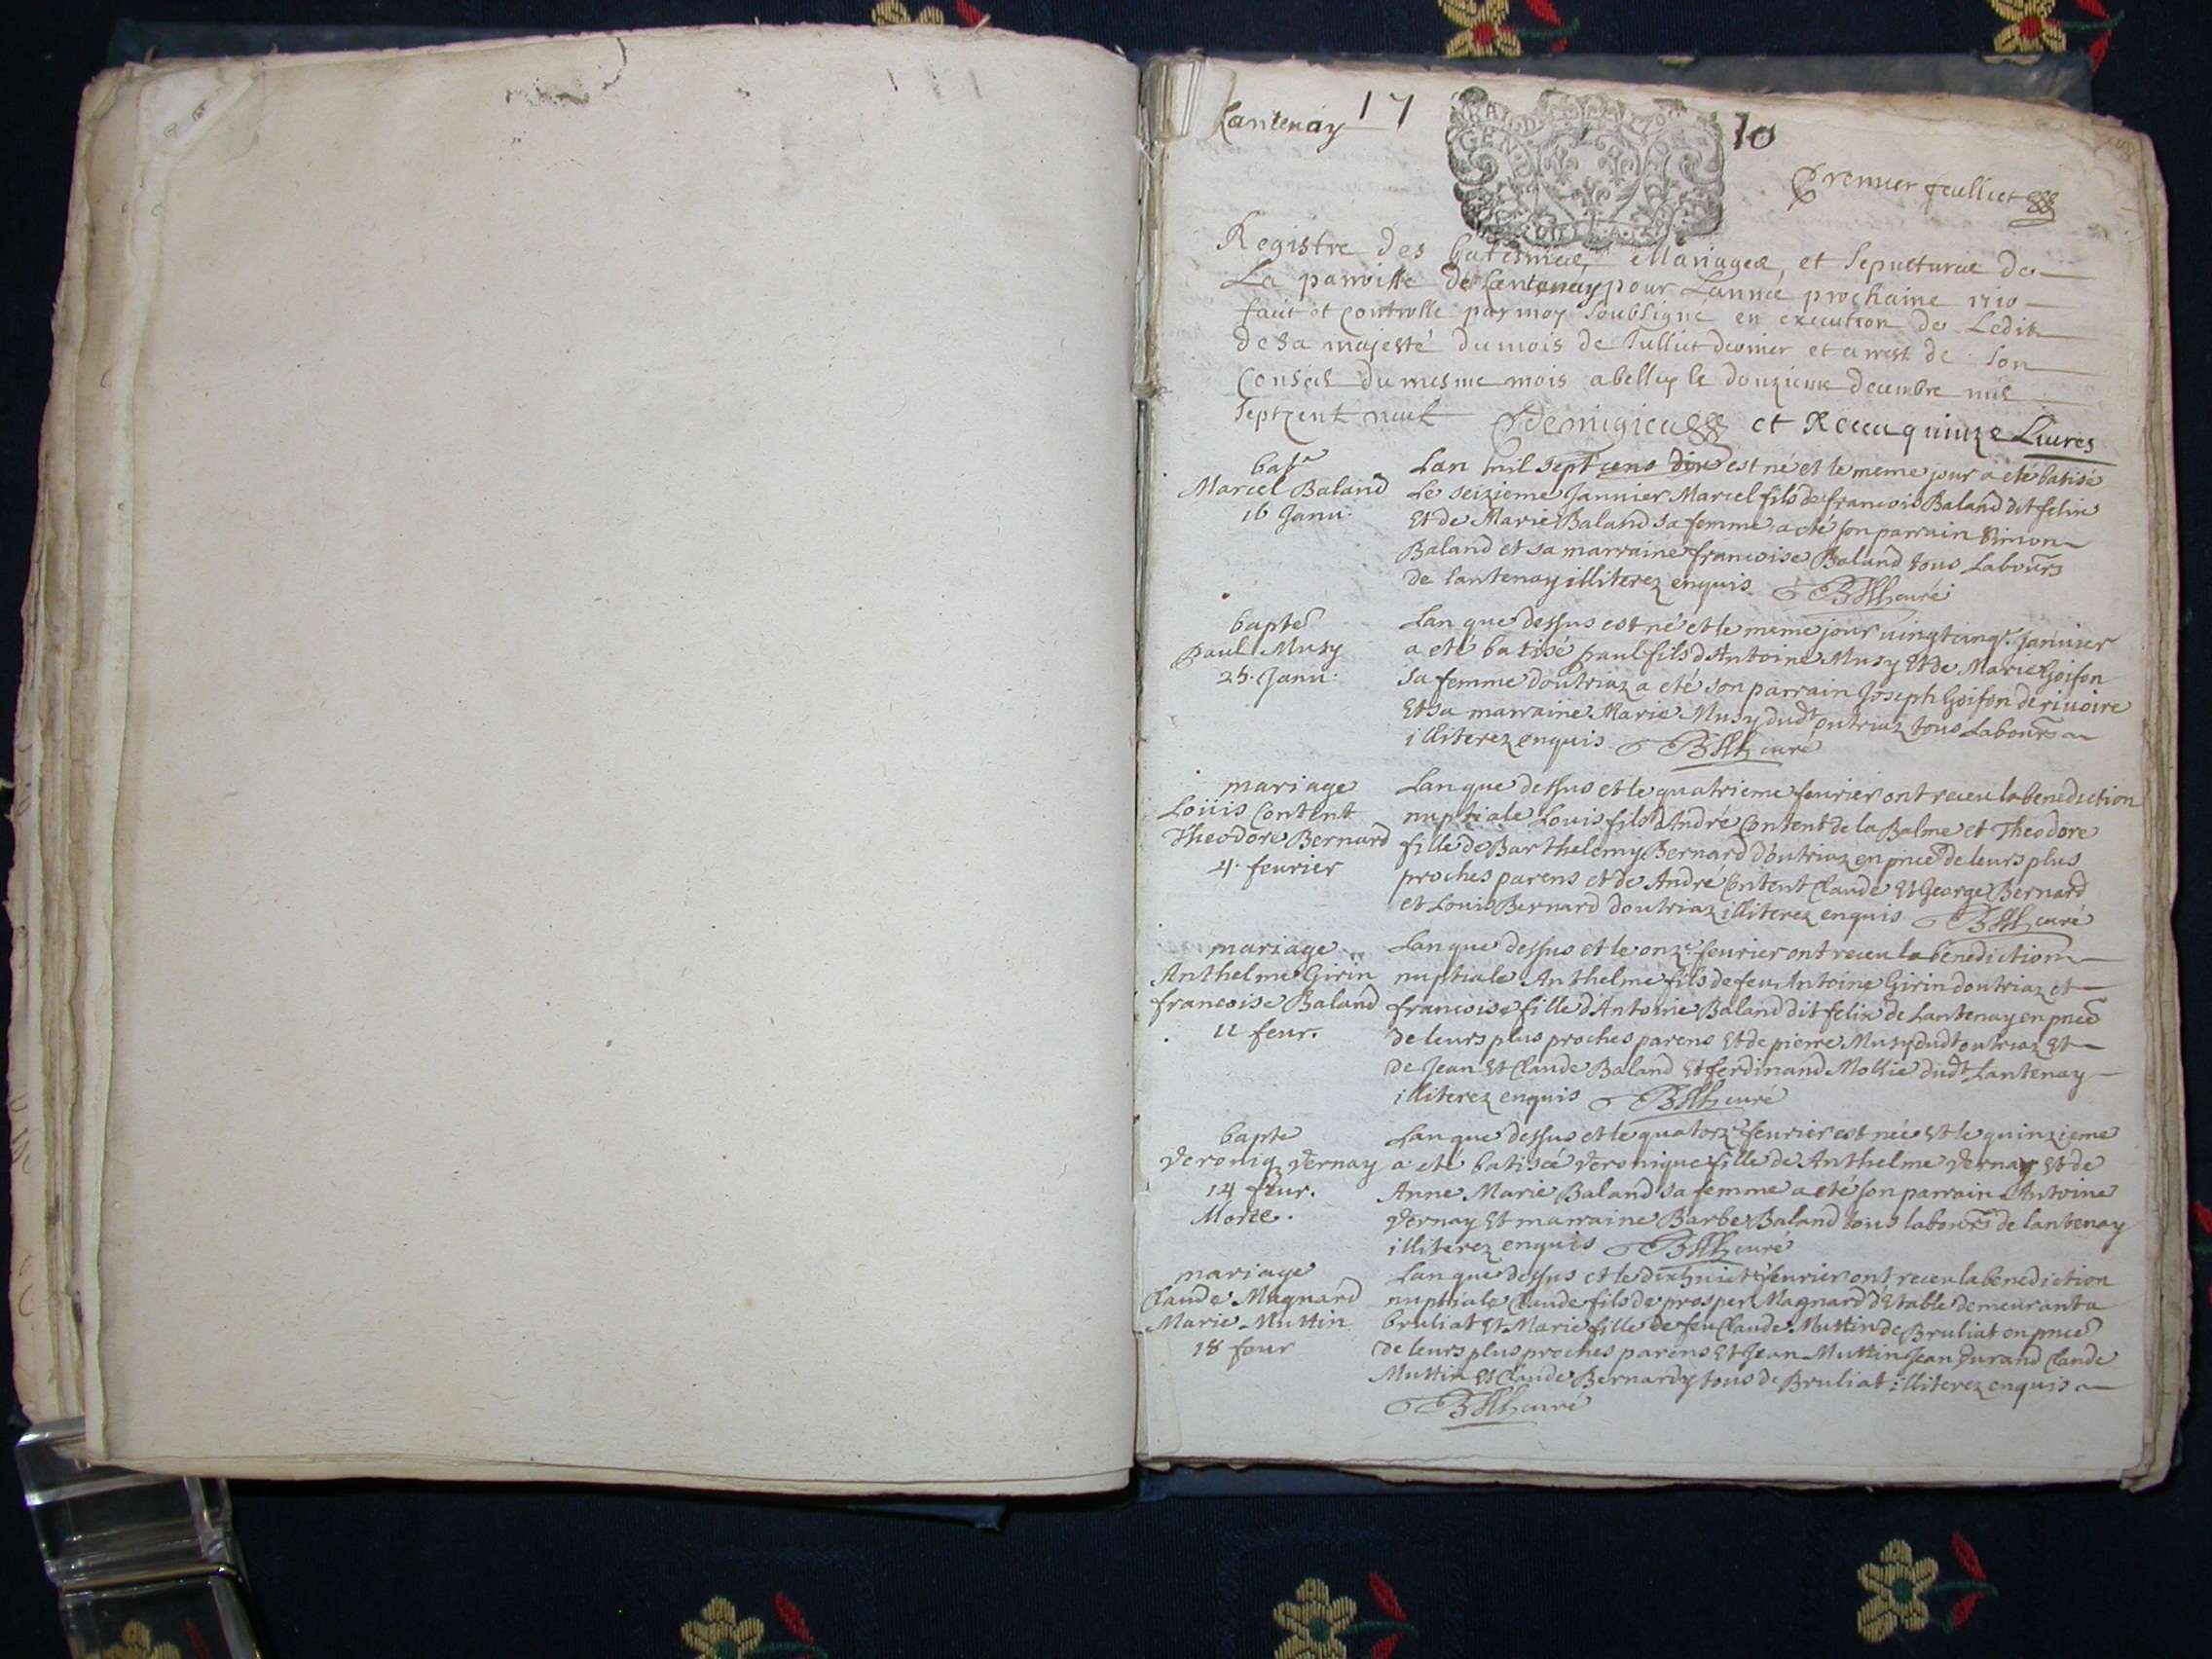 Lantenay 17 10
GEN
premier feulliet
Registre des batesmes, Mariages, et Sepultures de
La parroisse de Lantenay pour Lannee prochaine 1710
fait et Controlle par moy soubsigne en execution de Ledit
de Sa majesté du mois de Julliet dernier et arrest de son
Conseil du mesme mois a belley le douzieme decembre mil
Sept Cent neuf et Receu quinze Livres
bate
Marcel Baland
16 Janu.
Lan mil sept cens dix est né et le meme jour a eté batisé
Le seizieme Jannier Marcel fils de francois Baland dit felix
Et de Marie Baland sa femme a eté son parrain Simon
Baland et sa marraine francoise Baland tous Labours
de Lantenay illiterez enquis curé
bapte
Paul Musy
25. Janu.
Lan que dessus est né et le meme jour uingt cinqe januier
a eté batisé paul fils d'Antoine Musy Et de Marie Goifon
sa femme doutriaz a eté son parrain Joseph Goifon de riuoire
Et sa marraine Marie Musy dudt outriaz tous Labours
illiterez enquis curé
mariage
Loüis Content
Theodore Bernard
4. feurier
Lan que dessus et le quatrieme feurier ont receu la benediction
nuptiale Louis fils d'André Content de la Balme et Theodore
fille de Barthelemy Bernard d'outriaz en pnce de leurs plus
proches parens et de André Content Claude Et George Bernard
et Louis Bernard doutriaz illiterez enquis curé
mariage
Anthelme Girin
francoise Baland
11 feur.
Lan que dessus et le onze feurier ont receu la benediction
nuptiale Anthelme fils de feu Antoine Girin doutriaz et
francoise fille d'Antoine Baland dit felix de Lantenay en pnce
de leurs plus proches parens Et de pierre Musy dudt outriaz Et
de Jean Et Claude Baland Et ferdinand Mollie dudt Lantenay
illiterez enquis curé
bapte
Veroniq Vernay
14 feur.
Morte.
Lan que dessus et le quatorze feurier est née Et le quinzieme
a eté batisée Veronique fille de Anthelme Vernay Et de
Anne Marie Baland sa femme a eté son parrain Antoine
Vernay Et marraine Barbe Baland tous labours de lantenay
illiterez enquis curé
mariage
Claude Magnard
Marie Muttin
18 feur
Lan que dessus et le dixhuicte feurier ont receu la benediction
nuptiale Claude fils de prosper Magnard d'Etable demeurant a
bruliat Et Marie fille de feu Claude Muttin de Bruliat en pnce
de leurs plus proches parens Et Jean Muttin Jean Durand Claude
Muttin Et Claude Bernardy tous de Bruliat illiterez enquis
curé